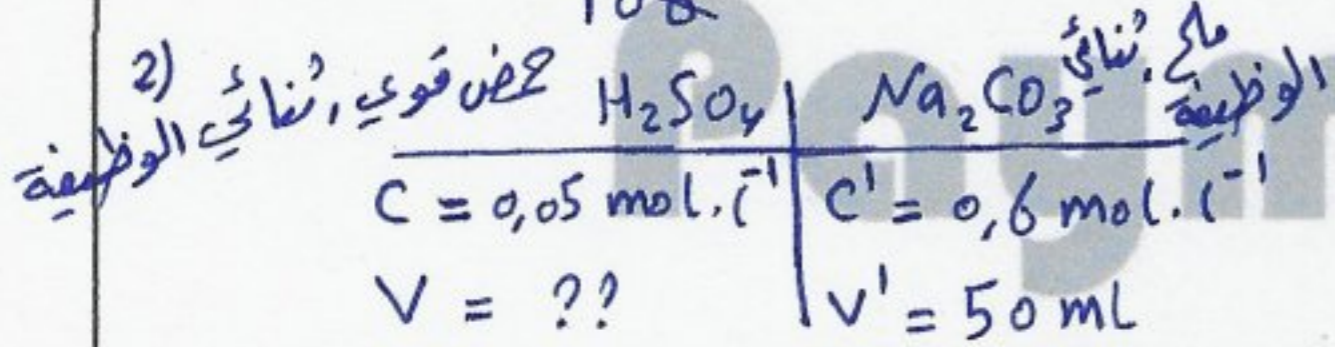 2) حمض قوي، ثنائي الوظيفة H₂SO₄ | Na₂CO₃ ملح ثنائي الوظيفة
C = 0,05 mol.l⁻¹ | C' = 0,6 mol.l⁻¹
V = ?? | V' = 50 mL